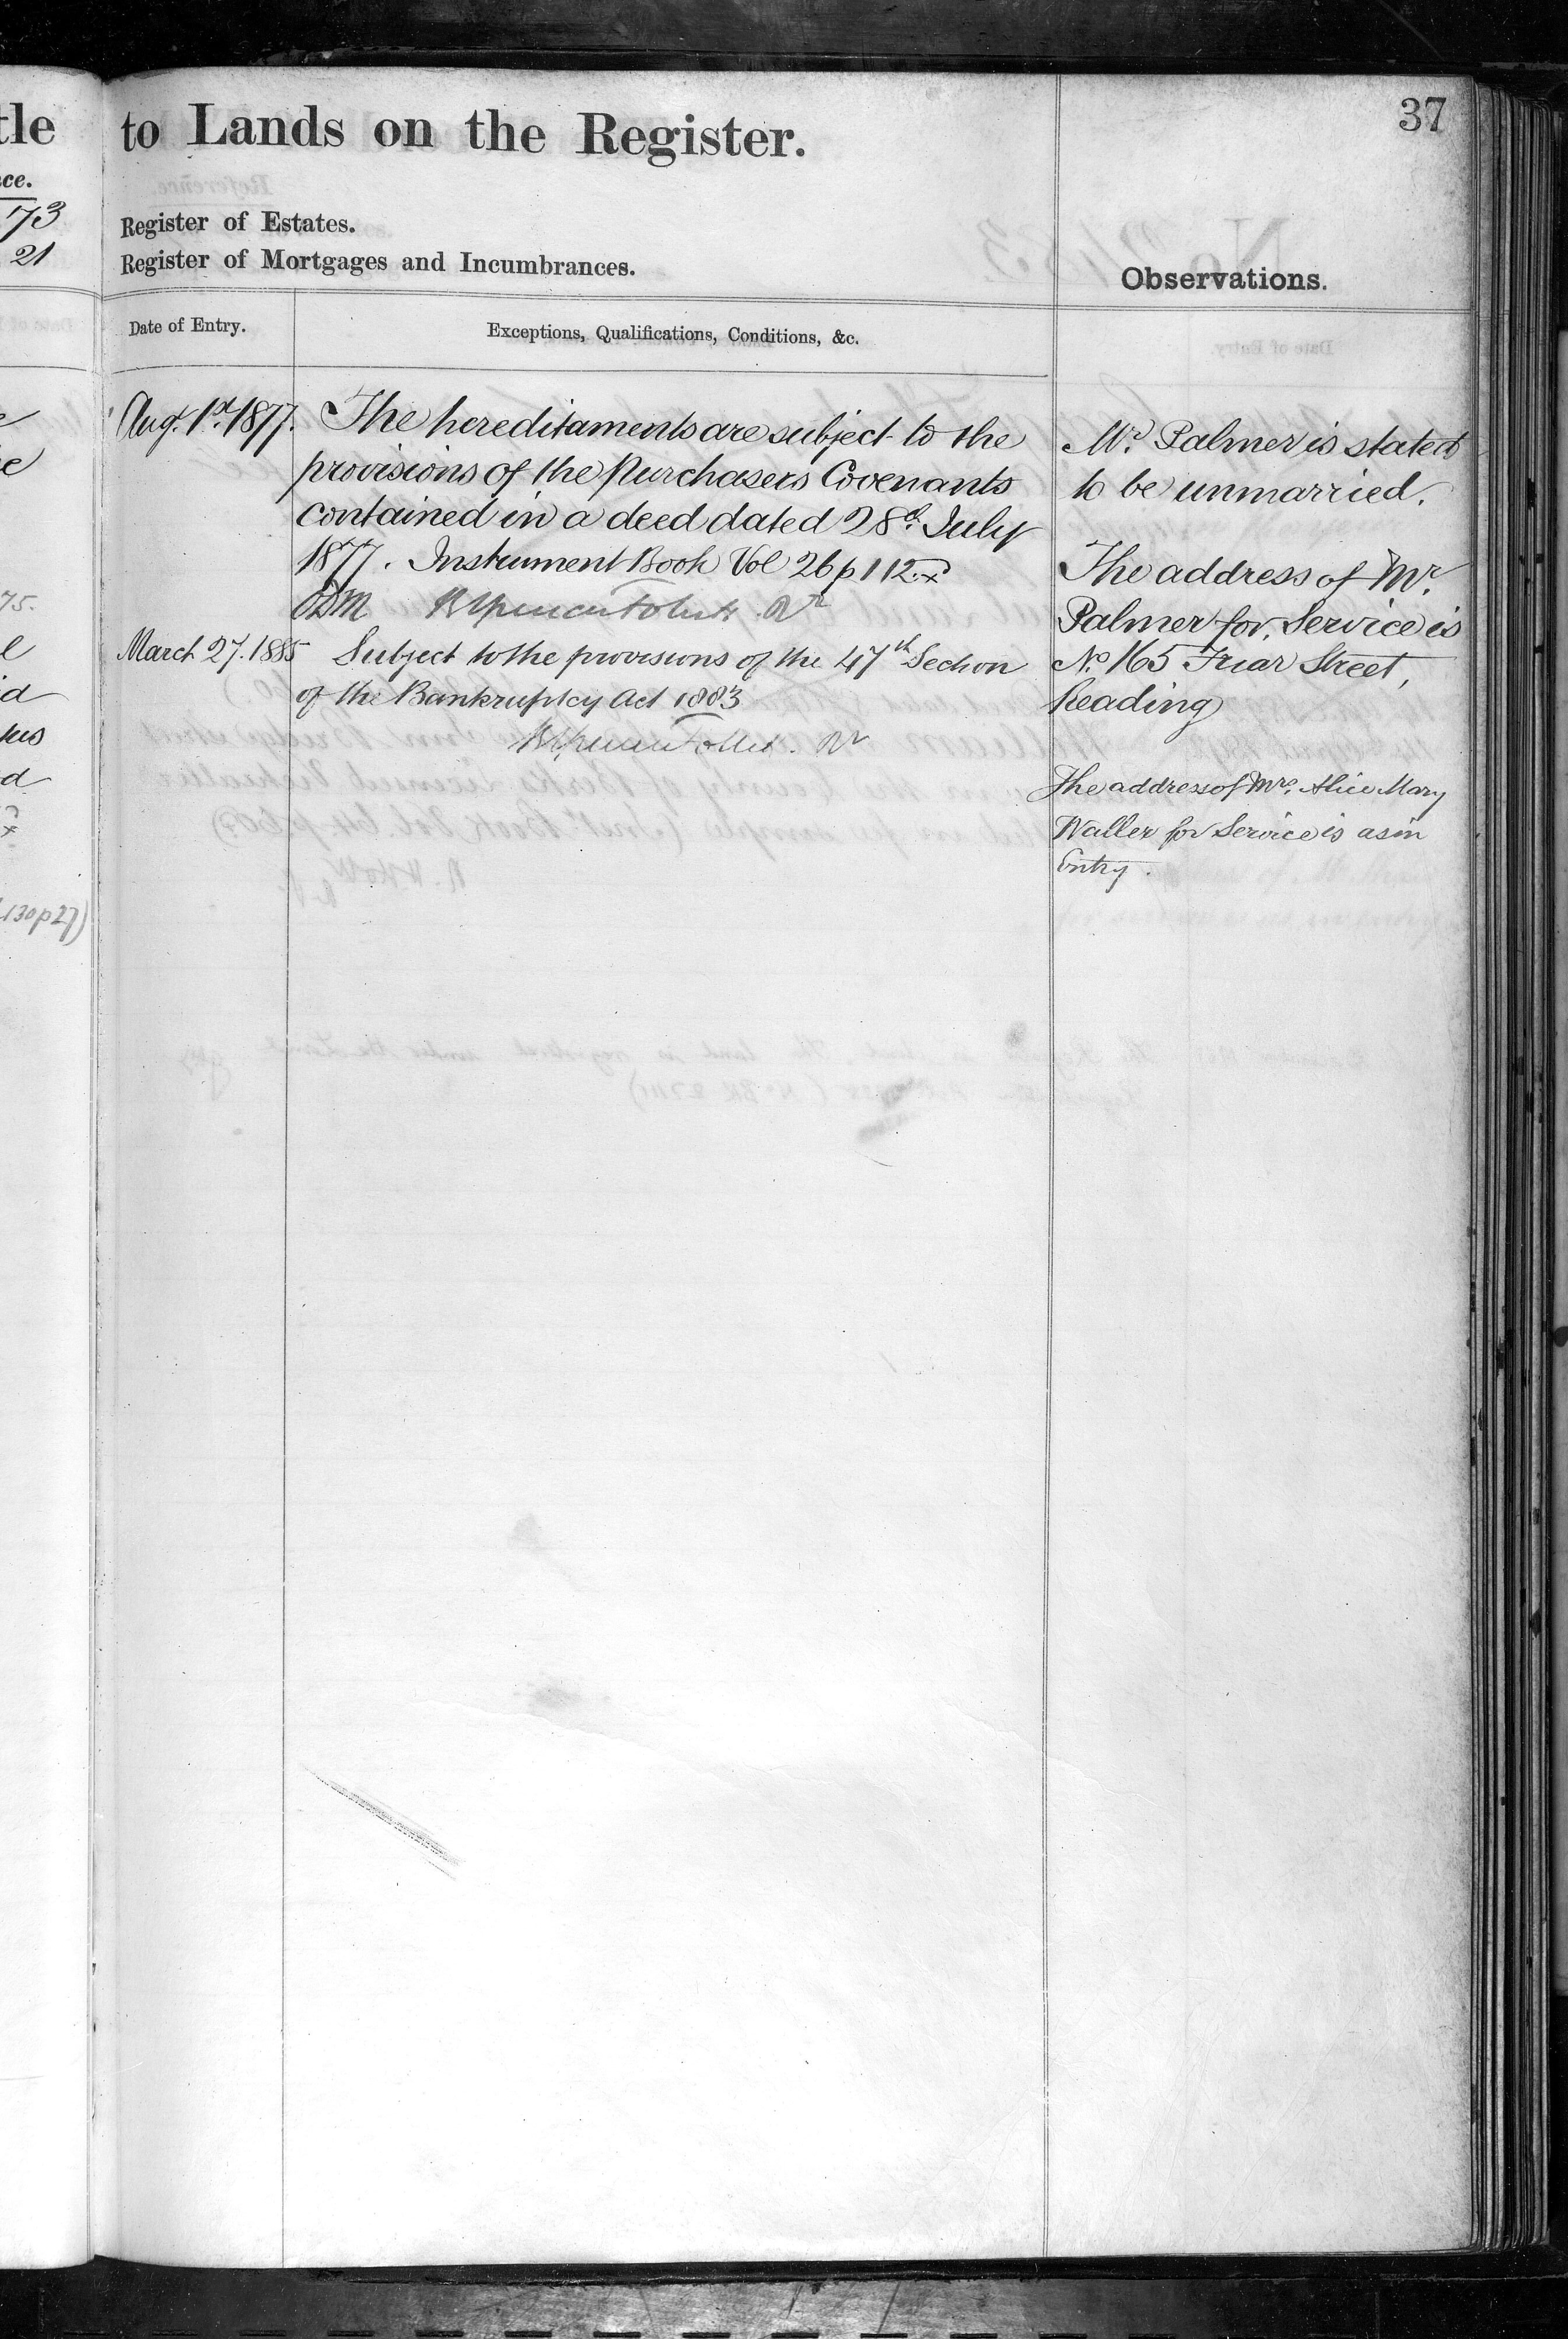 tle
ce.
73
21
75.
130 p 27)
37
to Lands on the Register.
Register of Estates.
Register of Mortgages and Incumbrances.
Date of Entry.
Exceptions, Qualifications, Conditions, &c.
Aug. 1st 1877.
The hereditaments are subject to the
provisions of the Purchasers Covenants
contained in a deed dated 28th July
1877. Instrument Book Vol 26 p 112
March 27. 1885
Subject to the provisions of the 47th Section
of the Bankruptcy Act 1883
Observations.
Mr. Palmer is stated
to be unmarried.
The address of Mr.
Palmer for Service is
No. 165 Friar Street,
Reading
The address of Mrs. Alice Mary
Waller for Service is as in
Entry.